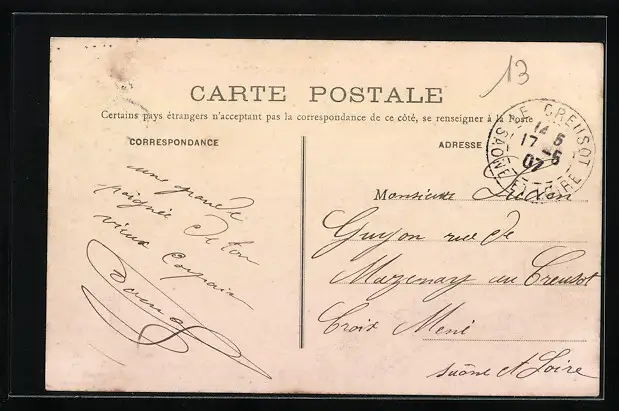 13
CARTE POSTALE
Certains pays étrangers n'acceptant pas la correspondance de ce côté, se renseigner à la Poste
CORRESPONDANCE
ADRESSE
LE CREUSOT
14 5
17 -6
07
SAONE ET LOIRE
une grande
poignée de ton
vieux Copain
Monsieur
Guyon rue de
Mazenay au Creusot
Croix Mené
Saône et Loire